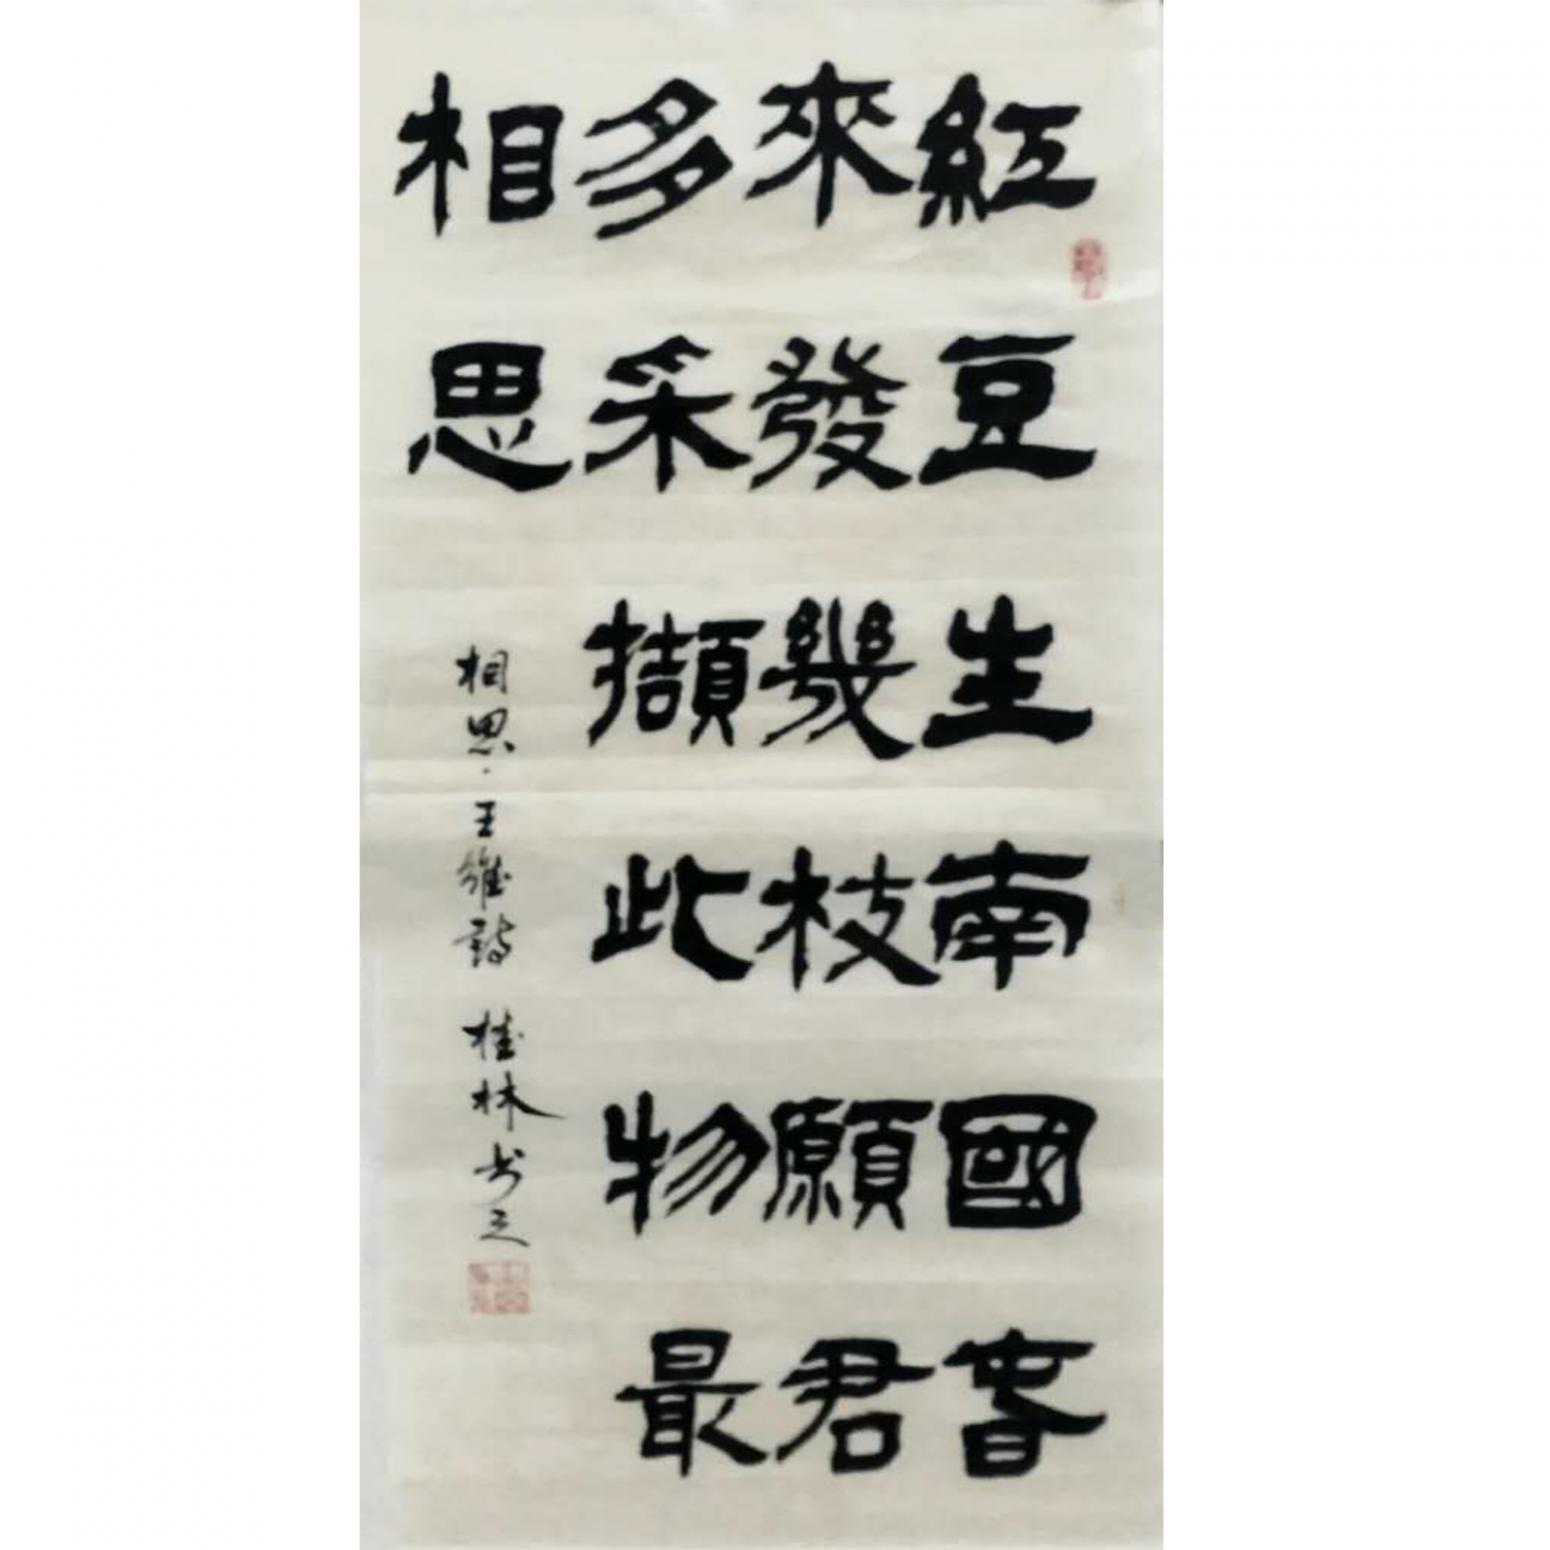 紅豆生南國春
來發幾枝願君
多采擷此物最
相思
相思·王維詩 桂林书之